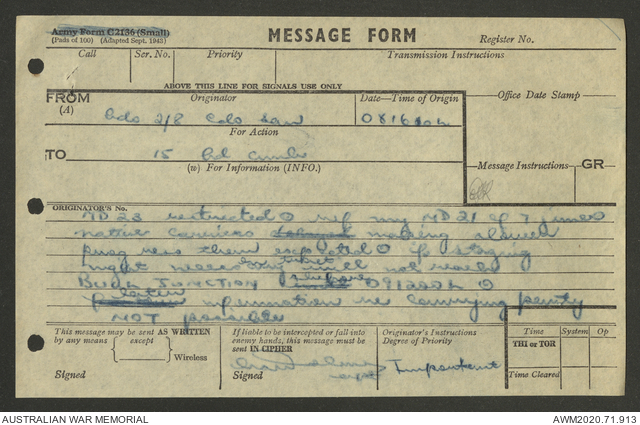 Army Form C2136 (Small)
(Pads of 100) (Adapted Sept. 1943)
MESSAGE FORM
Register No.
Call Ser. No. Priority Transmission Instructions
ABOVE THIS LINE FOR SIGNALS USE ONLY
FROM Originator Date—Time of Origin Office Date Stamp
(A) 2/8 Cdo Sqn 081600h
For Action
TO 15 Bde
(w) For Information (INFO.) Message Instructions GR
ORIGINATOR'S No.
MD 23 restricted O ref my MD 21 of 7 June O
native carriers making slower
progress than expected O if staging
night necessary will not reach
BUGA JUNCTION before 091200h O
later information re carrying party
NOT possible
This message may be sent AS WRITTEN If liable to be intercepted or fall into Originator's Instructions Time System Op
by any means except enemy hands, this message must be Degree of Priority THI or TOR
Wireless sent IN CIPHER Important
Signed Signed Capt Time Cleared
AUSTRALIAN WAR MEMORIAL AWM2020.71.913